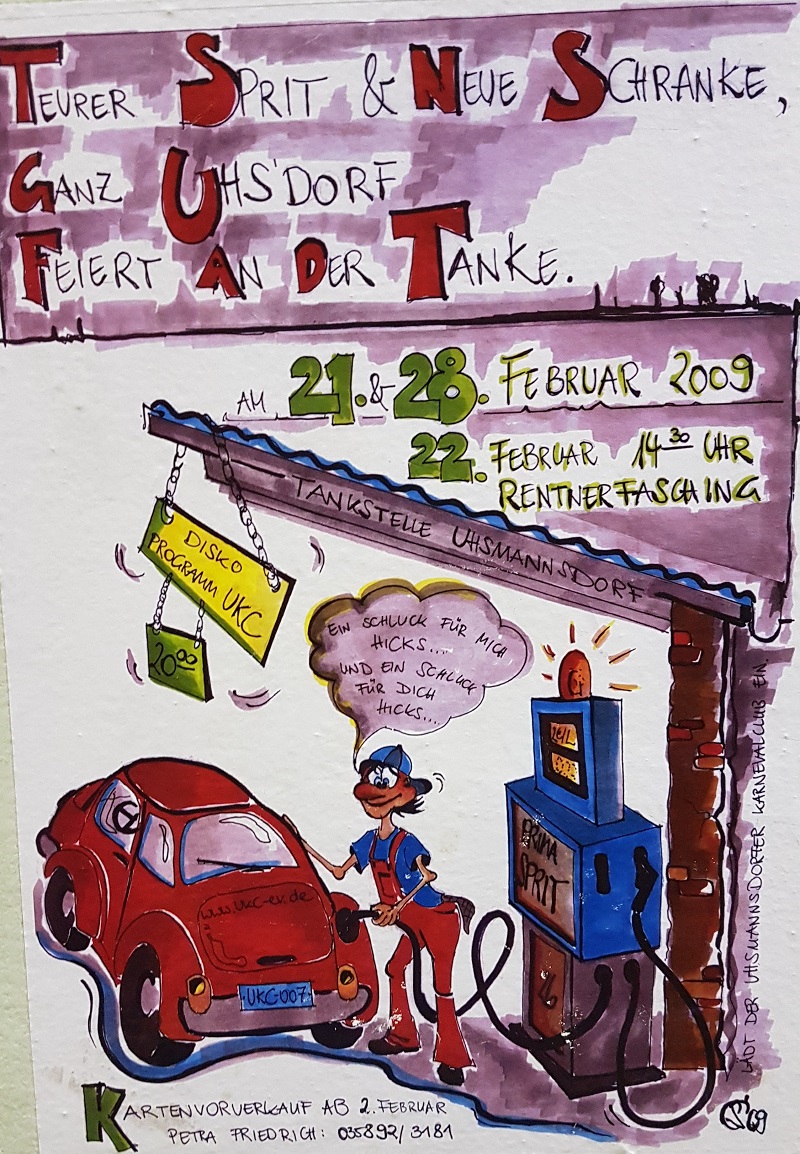 TEURER SPRIT & NEUE SCHRANKE,
GANZ UHS'DORF
FEIERT AN DER TANKE.
AM 21. & 28. FEBRUAR 2009
22. FEBRUAR 14 30 UHR
RENTNERFASCHING
TANKSTELLE UHSMANNSDORF
DISKO
PROGRAMM UKC
20 00
EIN SCHLUCK FÜR MICH
HICKS...
UND EIN SCHLUCK
FÜR DICH
HICKS...
PRIMA
SPRIT
www.ukc-ev.de
UKC-007
LÄDT DER UHSMANNSDORFER KARNEVALCLUB EIN.
KARTENVORVERKAUF AB 2. FEBRUAR
PETRA FRIEDRICH: 035892/3181